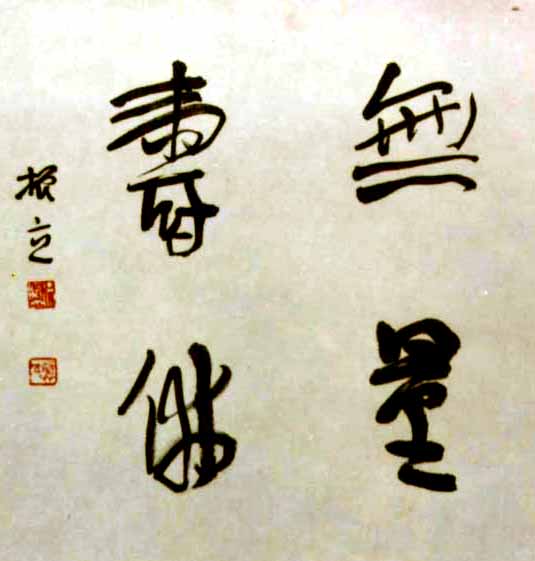 無量
壽佛
振立